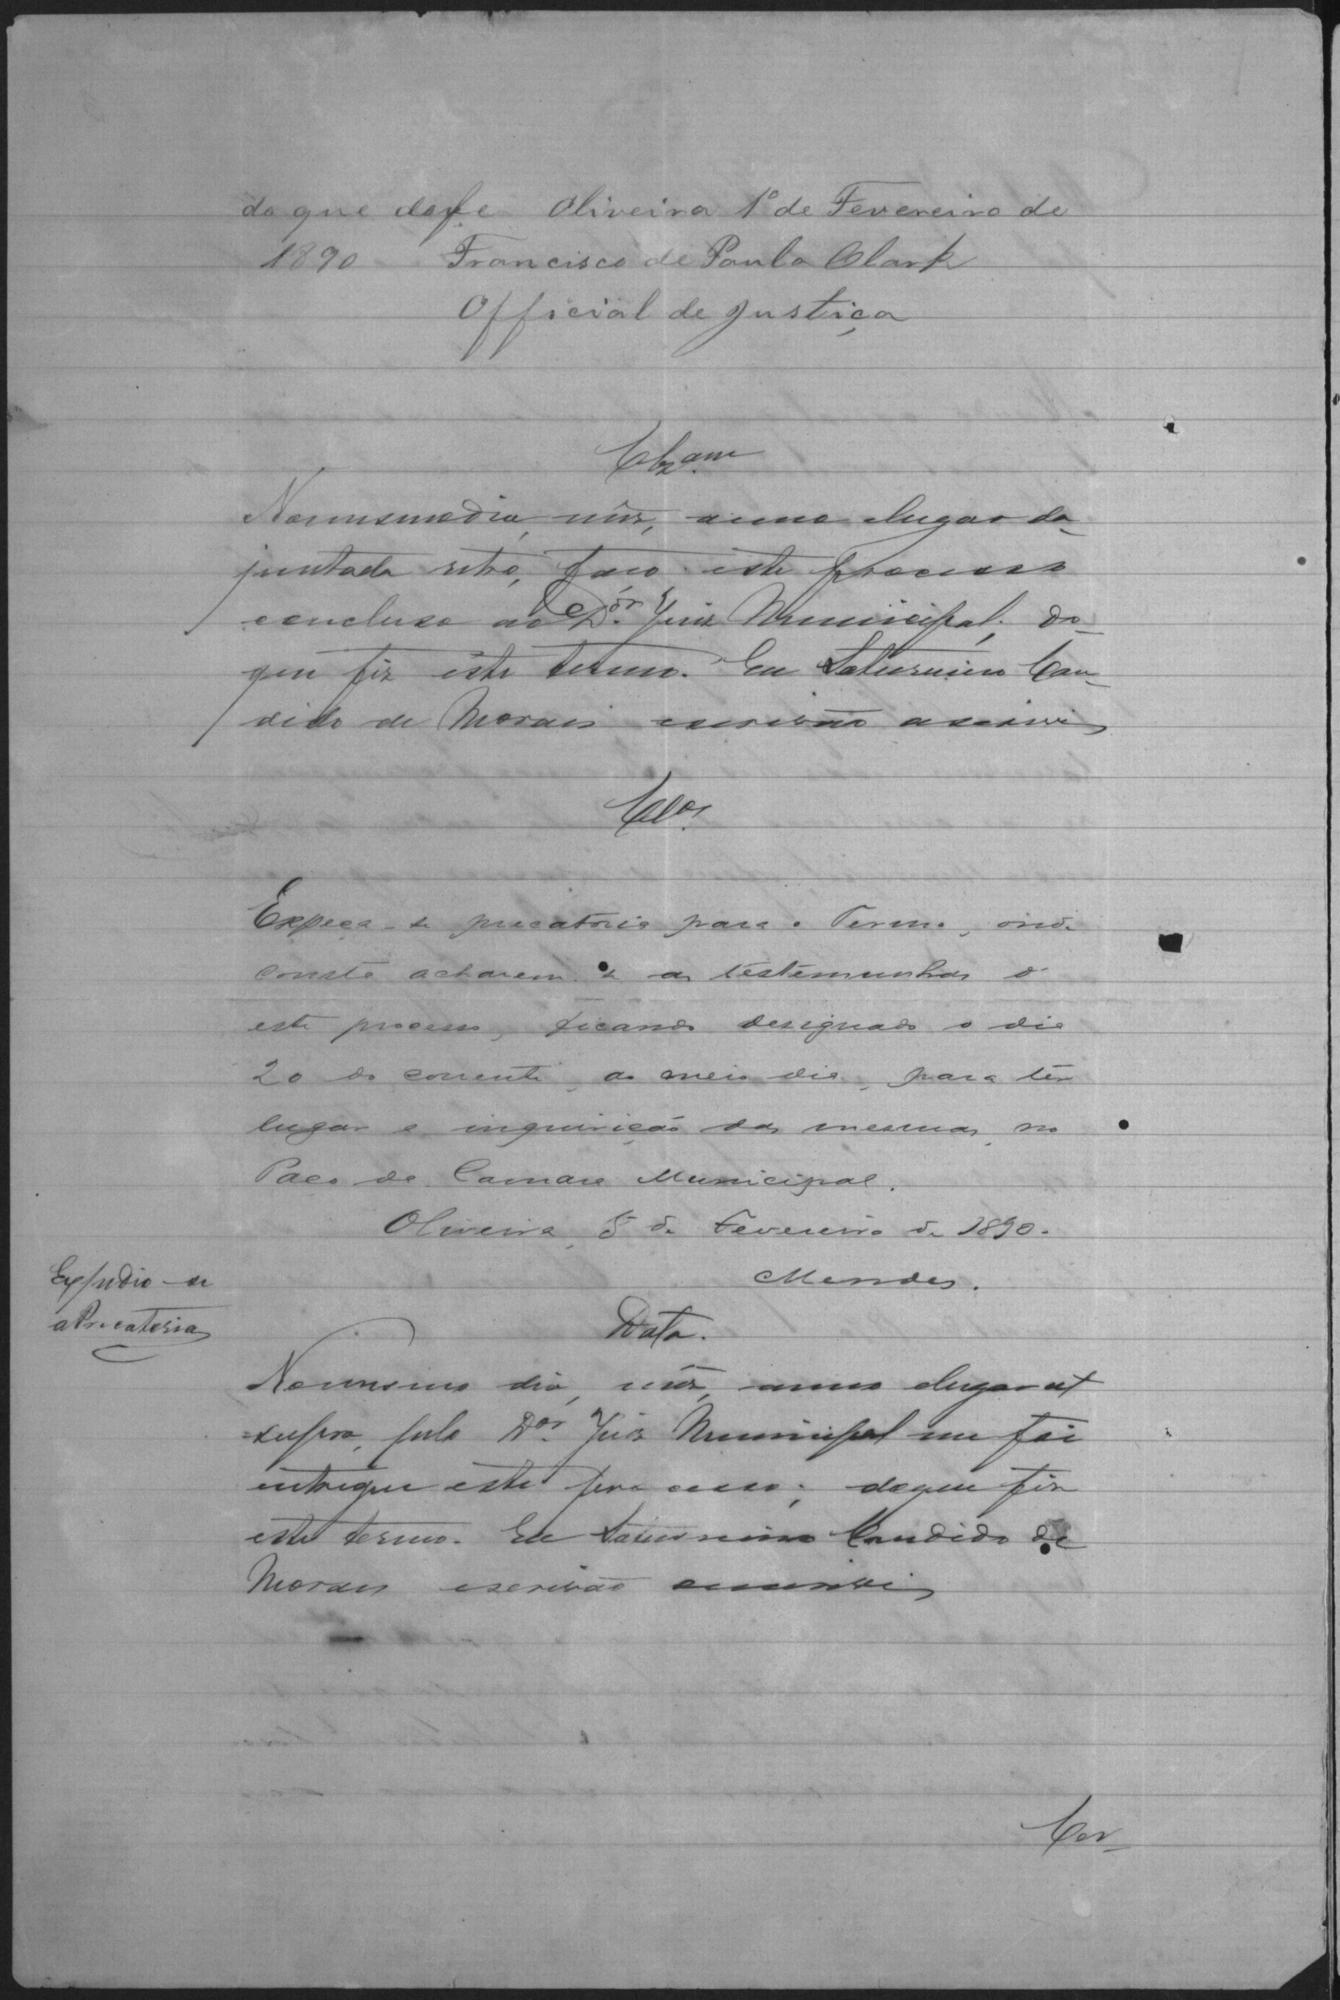 do que dou fe Oliveira 1º de Fevereiro de
1890 Francisco de Paula Clark
Official de Justiça
Clzam
No mesmo dia, mêz, anno e lugar da
juntada retro, faço este processo
concluso ao Dor. Juiz Municipal; do
que fiz este termo. Eu Saturnino Can-
dido de Moraes escrivão escrivi
Clos
Expeça-se precatoria para o Termo, onde
conste acharem-se as testemunhas d'
este processo, ficando designado o dia
20 do corrente, ao meio dia, para ter
lugar a inquirição das mesmas, no
Paço da Camara Municipal.
Oliveira, 5 de Fevereiro de 1890.
Mendes.
Expedio-se
a Precatoria
Data.
No mesmo dia, mêz, anno e lugar ut
supra, pelo Dor. Juiz Municipal me foi
entregue este processo; do que fiz
este termo. Eu Saturnino Candido de
Moraes escrivão escrivi
Cer-